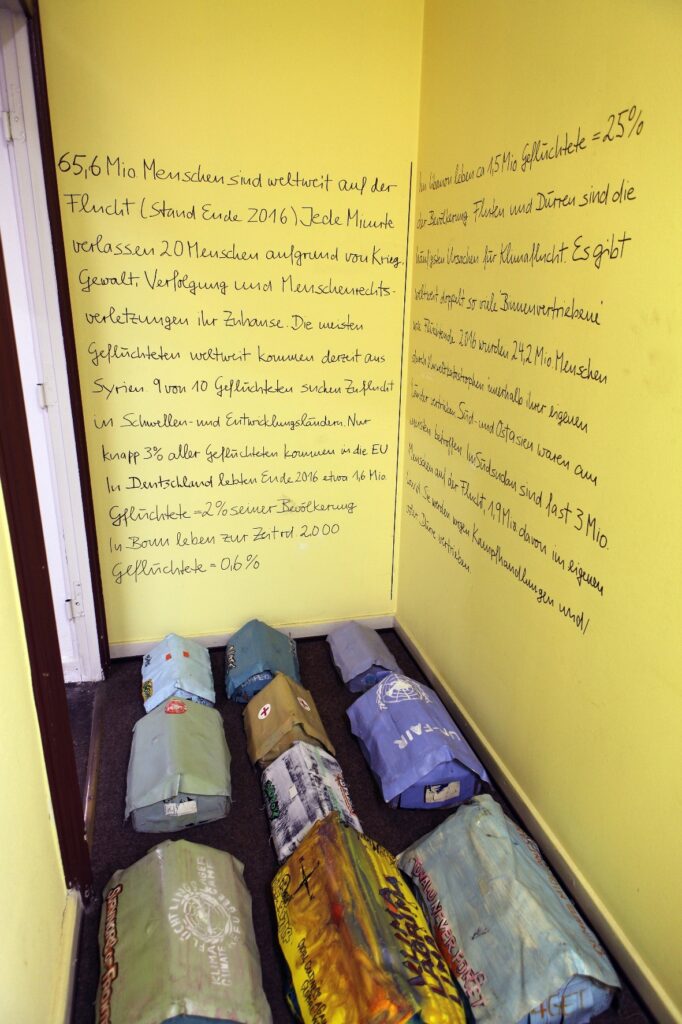 65,6 Mio Menschen sind weltweit auf der
Flucht (Stand Ende 2016) Jede Minute
verlassen 20 Menschen aufgrund von Krieg,
Gewalt, Verfolgung und Menschenrechts-
verletzungen ihr Zuhause. Die meisten
Geflüchteten weltweit kommen derzeit aus
Syrien. 9 von 10 Geflüchteten suchen Zuflucht
in Schwellen- und Entwicklungsländern. Nur
knapp 3% aller Geflüchteten kommen in die EU
In Deutschland lebten Ende 2016 etwa 1,6 Mio
Geflüchtete = 2% seiner Bevölkerung
In Bonn leben zur Zeit rd. 2000
Geflüchtete = 0,6%
Im Libanon leben ca 1,5 Mio Geflüchtete = 25%
der Bevölkerung Fluten und Dürren sind die
häufigsten Ursachen für Klimaflucht. Es gibt
weltweit doppelt so viele 'Binnenvertriebene'
wie Flüchtende. 2016 wurden 24,2 Mio. Menschen
durch Umweltkatastrophen innerhalb ihrer eigenen
Länder vertrieben. Süd- und Ostasien waren am
meisten betroffen. Im Südsudan sind fast 3 Mio.
Menschen auf der Flucht, 1,9 Mio davon im eigenen
Land. Sie werden wegen Kampfhandlungen und/
oder Dürre vertrieben.
UN-FAIR
FLÜCHTLING
KLIMA
CLIMATE
4GET